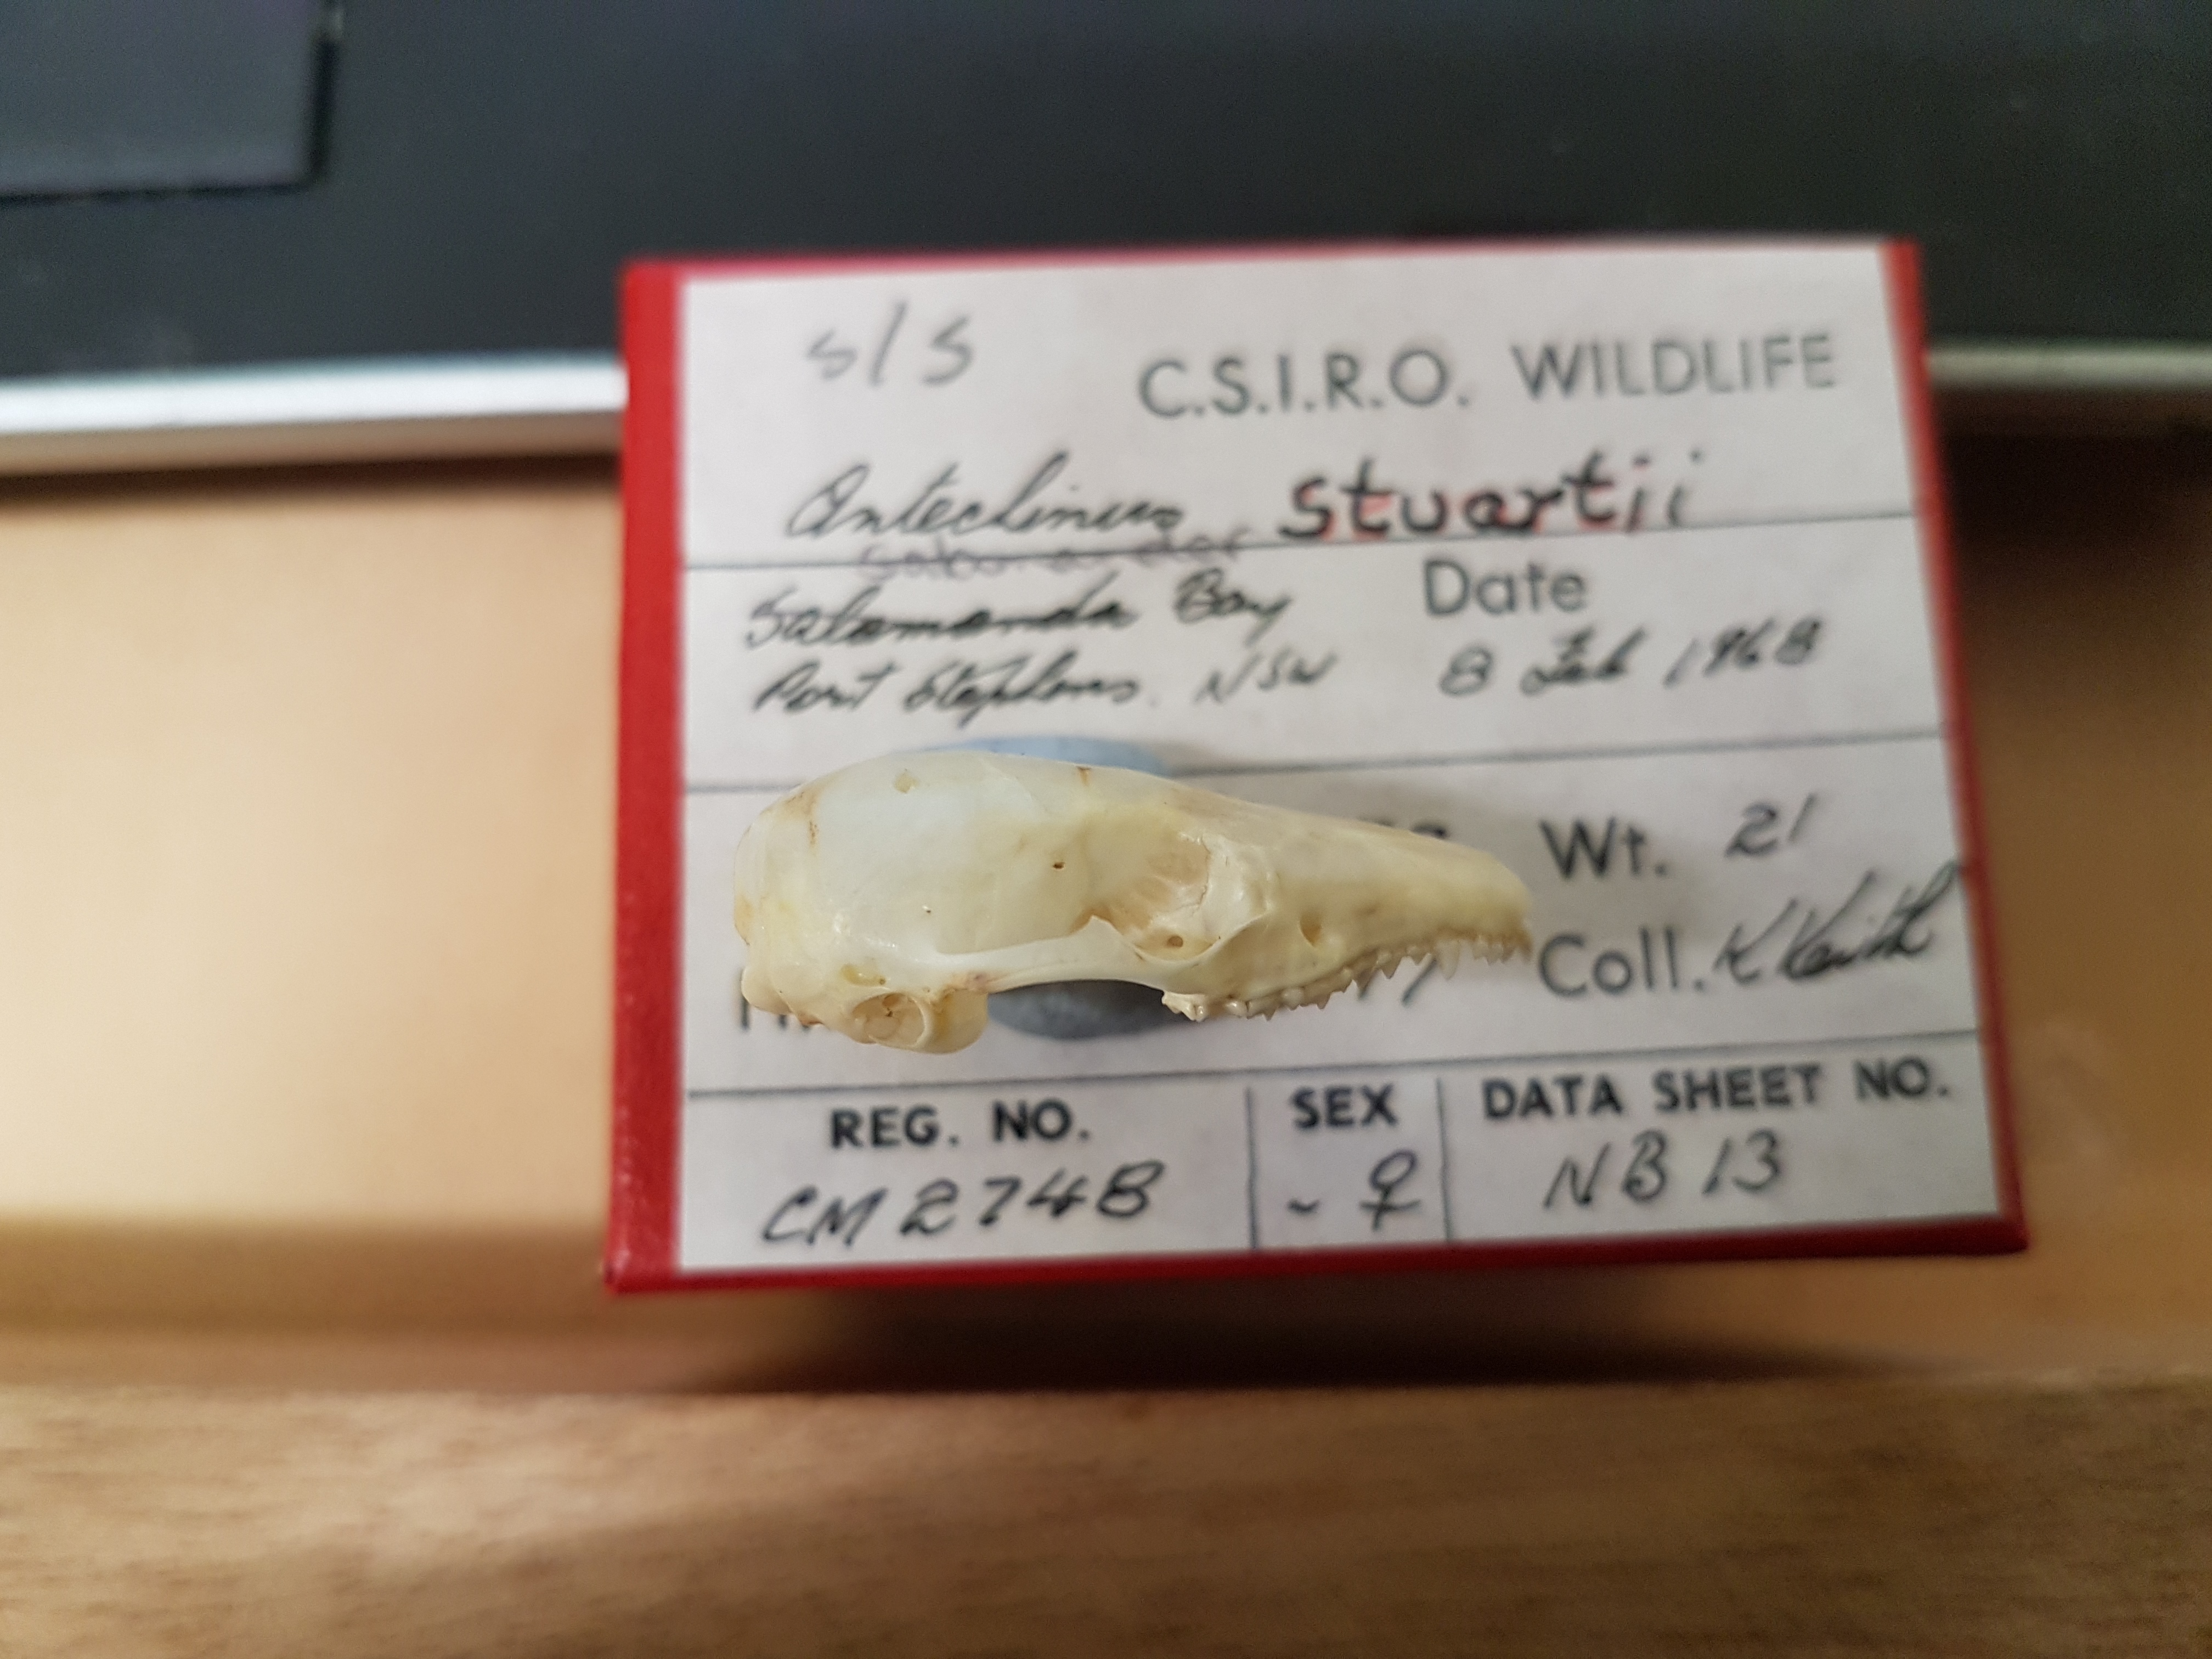 s/s
C.S.I.R.O. WILDLIFE
Antechinus stuartii
Salamanda Bay
Port Stephens. NSW
Date
8 Feb 1968
Wt. 21
Coll. K Keith
REG. NO.
CM 2748
SEX
♀
DATA SHEET NO.
NB 13